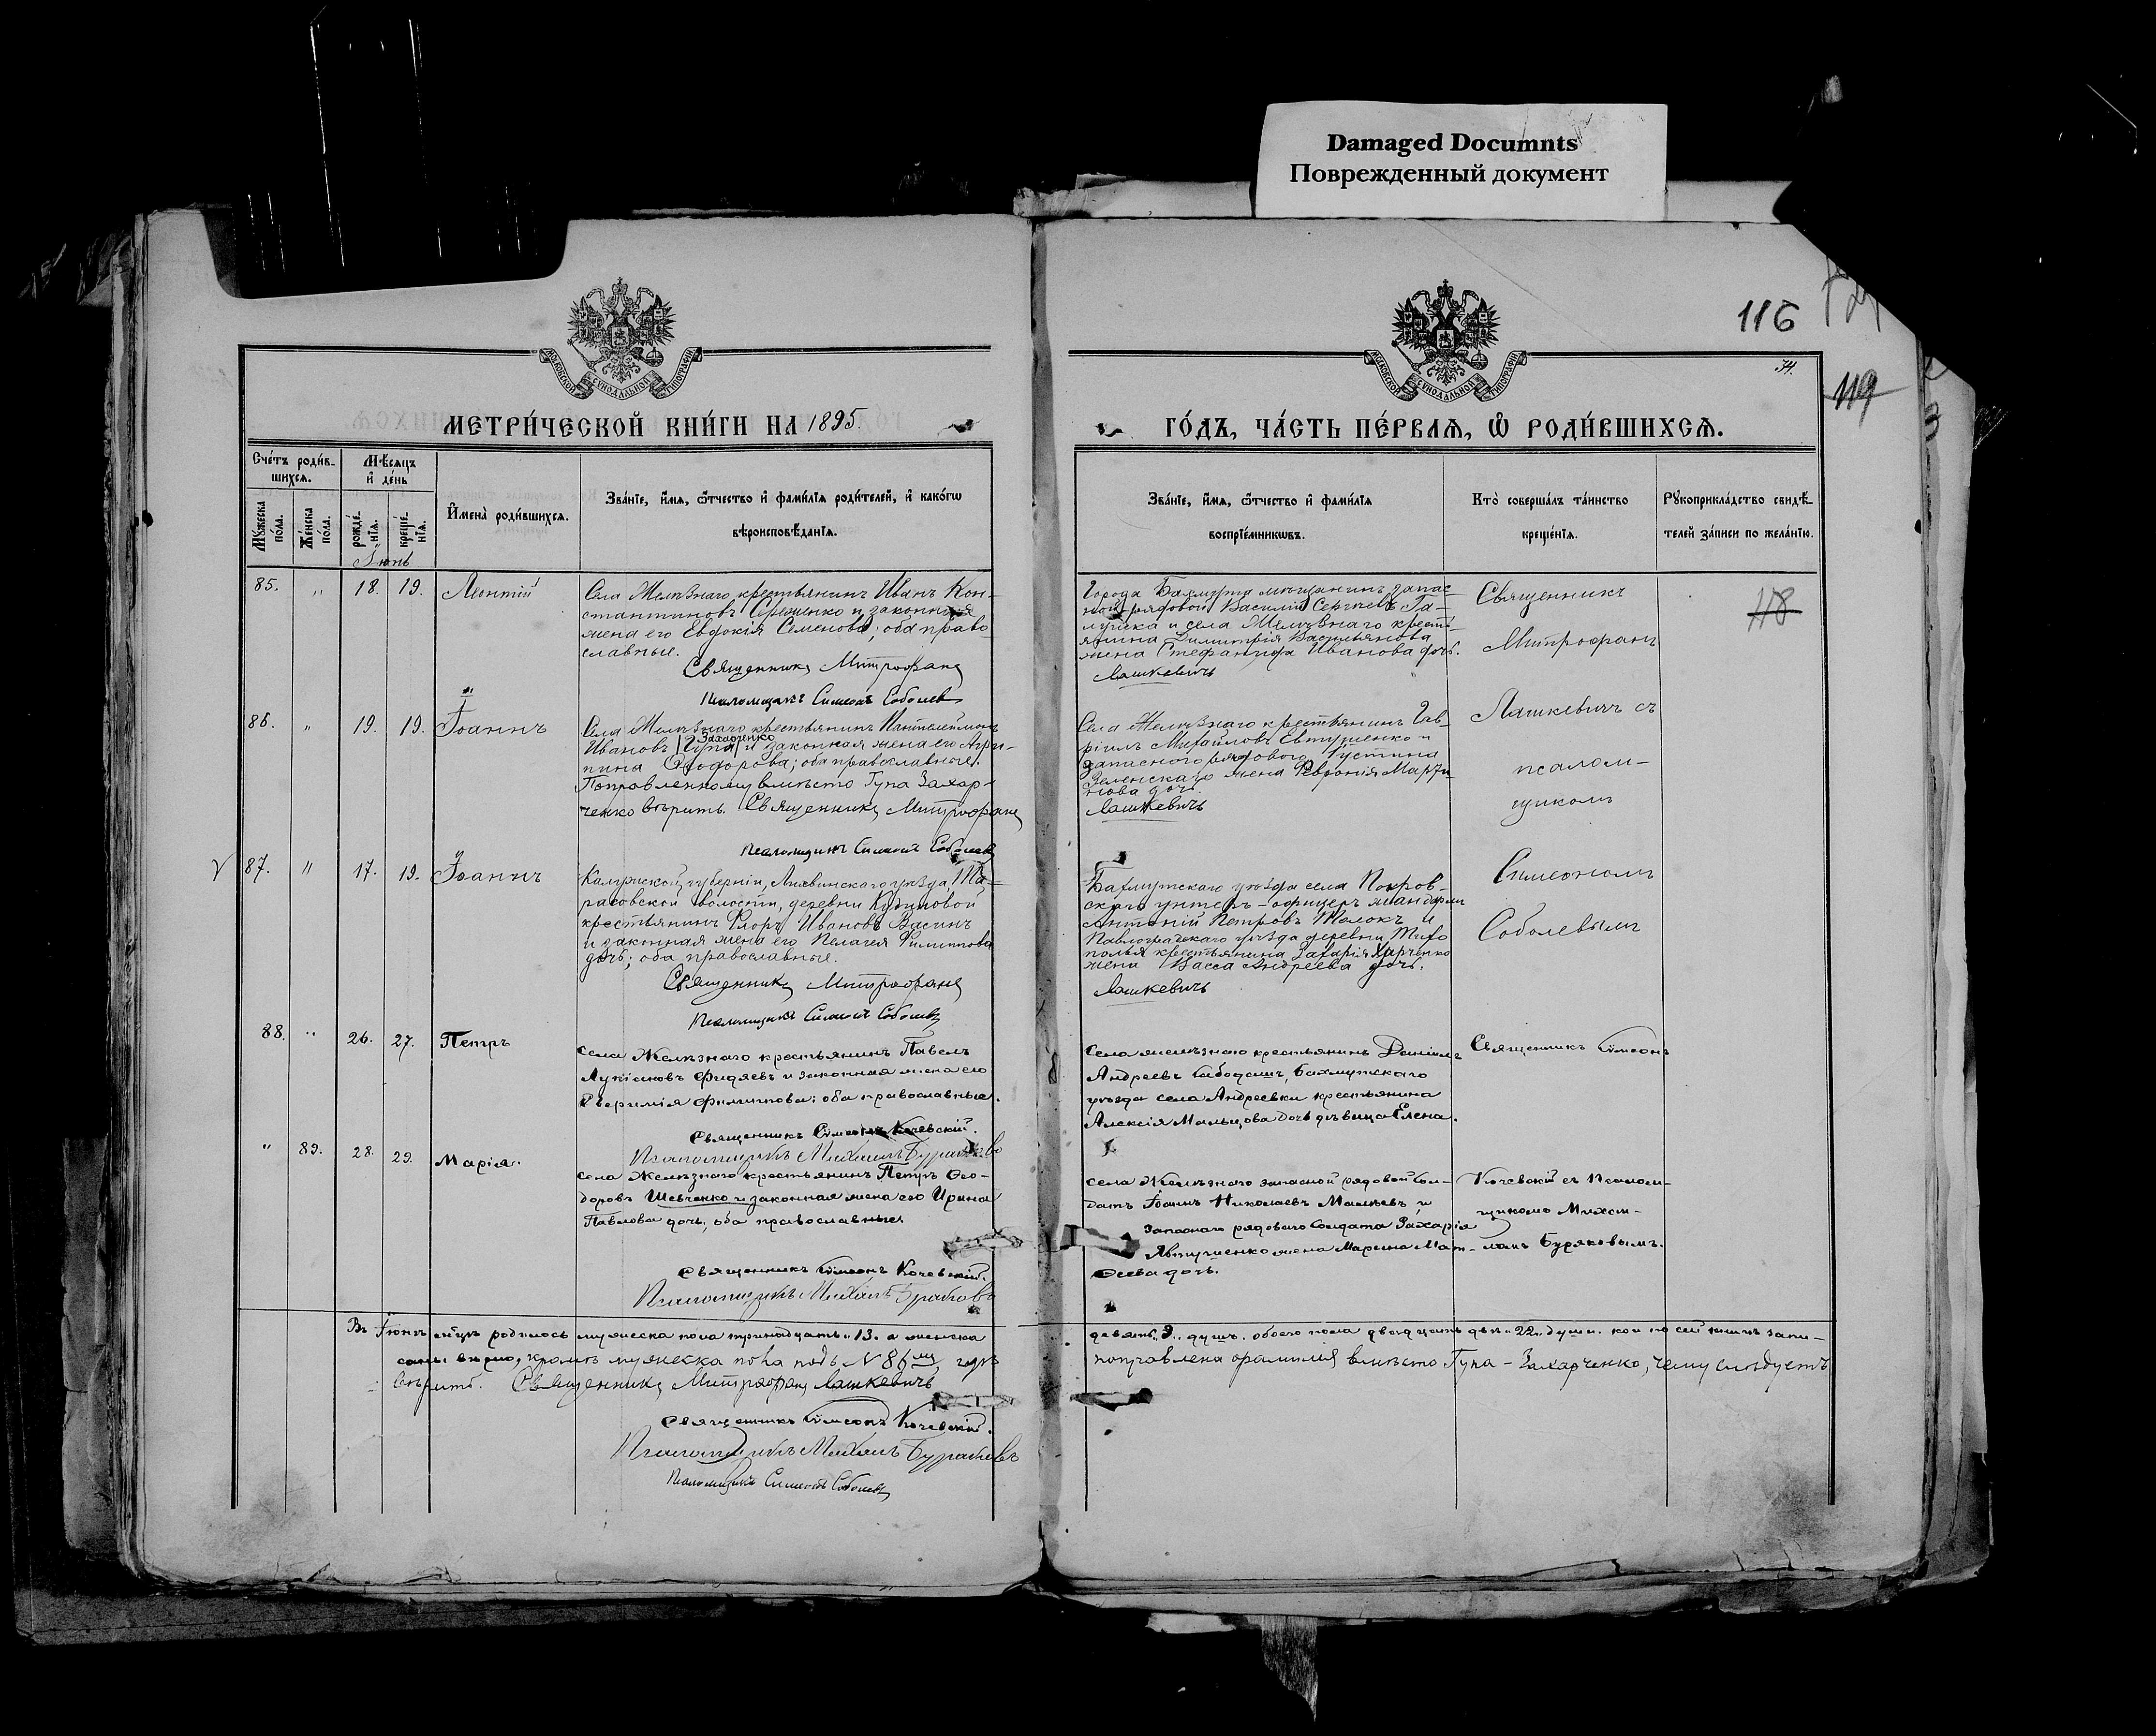 Damaged Documnts
Поврежденный документ
116
119
34.
МОСКОВСКОЙ СѴНОДАЛЬНОЙ ТИПОГРАФІИ
МОСКОВСКОЙ СѴНОДАЛЬНОЙ ТИПОГРАФІИ
МЕТРИ́ЧЕСКОЙ КНИ́ГИ НА 1895.
ГО́ДЪ, ЧА́СТЬ ПЕ́РВАѦ, Ѽ РОДИ́ВШИХСѦ.
Сче́тъ роди́в-
шихсѧ.
Мѣ́сѧцъ
и҆ де́нь
Мꙋ́жеска по́ла.
Же́нска по́ла.
рожде́-
нїѧ.
креще́-
нїѧ.
И҆мена̀ роди́вшихсѧ.
Зва́нїе, и҆́мѧ, ѻ҆́тчество и҆ фами́лїѧ роди́телей, и҆ како́гѡ
вѣроисповѣ́данїѧ.
Зва́нїе, и҆́мѧ, ѻ҆́тчество и҆ фами́лїѧ
воспрїе́мникѡвъ.
Кто̀ соверша́лъ та́инство
креще́нїѧ.
Рꙋкоприкла́дство свидѣ́-
телей за́писи по жела́нїю.
Іюнь
85. " 18. 19. Леонтій
Села Желѣзнаго крестьянинъ Иванъ Кон-
стантиновъ Сереженко и законная
жена его Евдокія Семенова; оба право-
славные.
Священникъ Митрофанъ
Псаломщикъ Симеонъ Соболевъ
Города Бахмута мѣщанинъ запас-
ной рядовой Василій Сергѣевъ Га-
лушка и села Желѣзнаго кресть-
янина Димитрія Васильянова
жена Стефанида Иванова дочь.
Лашкевичъ
Священникъ
Митрофанъ
118
86. " 19. 19. Іоаннъ
Села Желѣзнаго крестьянинъ Пантелеймонъ
Захарченко
Ивановъ /Гупа/ и законная жена его Агри-
пина Ѳеодорова; оба православные.
Поправленному вмѣсто Гупа Захар-
ченко вѣрить. Священникъ Митрофанъ
Псаломщикъ Симеонъ Соболевъ
Села Желѣзнаго крестьянинъ Гав-
ріилъ Михайловъ Евтушенко и
запасного рядового Густина
Зеленскаго жена Февронія Марти-
нова дочь.
Лашкевичъ
Лашкевичъ съ
псалом-
щикомъ
V 87. " 17. 19. Іоаннъ
Калужской губерніи, Лихвинскаго уѣзда, Та-
расовской волости, деревни
крестьянинъ Флоръ Ивановъ Васинъ
и законная жена его Пелагея Филиппова
дочь; оба православные.
Священникъ Митрофанъ
Псаломщикъ Симеонъ Соболевъ
Бахмутскаго уѣзда села Покров-
скаго унтеръ-офицеръ жандармъ
Антоній Петровъ Толокъ и
Павлоградскаго уѣзда деревни Тихо
полья крестьянина Захарія Харченко
жена Васса Андреева дочь.
Лашкевичъ
Симеономъ
Соболевымъ
88. " 26. 27. Петръ
села Желѣзнаго крестьянинъ Павелъ
Лукіановъ Фидяевъ и законная жена его
Евфимія Филиппова; оба православные.
Священникъ Симеонъ Кочевскій.
Псаломщикъ Михаилъ Буряковъ
Села Желѣзнаго крестьянинъ Даніилъ
Андреевъ Сабодашъ, Бахмутскаго
уѣзда села Андреевки крестьянина
Алексія Мальцова дочь дѣвица Елена.
Священникъ Симеонъ
" 89. 28. 29. Марія.
села Желѣзнаго крестьянинъ Петръ Ѳео-
доровъ Шевченко и законная жена его Ирина
Павлова дочь; оба православные.
Священникъ Симеонъ Кочевскій.
Псаломщикъ Михаилъ Буряковъ
села Желѣзнаго запасной рядовой Сол-
датъ Іоаннъ Николаевъ Малѣевъ и
запаснаго рядоваго Солдата Захарія
Явтушенко жена Марина Мат-
ѳеева дочь.
Кочевскій съ Псалом-
щикомъ Михаи-
ломъ Буряковымъ.
Въ Іюнѣ мѣсяцѣ родилось мужеска пола тринадцать "13. а женска
девять "9" душъ. обоего пола двадцать двѣ "22" души. кои по сей книгѣ запи-
саны вѣрно, кромѣ мужеска пола подъ № 86мъ гдѣ
поправлена фамилія вмѣсто Гупа - Захарченко, чему слѣдуетъ
вѣрить. Священникъ Митрофанъ Лашкевичъ
Священникъ Симеонъ Кочевскій.
Псаломщикъ Михаилъ Буряковъ
Псаломщикъ Симеонъ Соболевъ